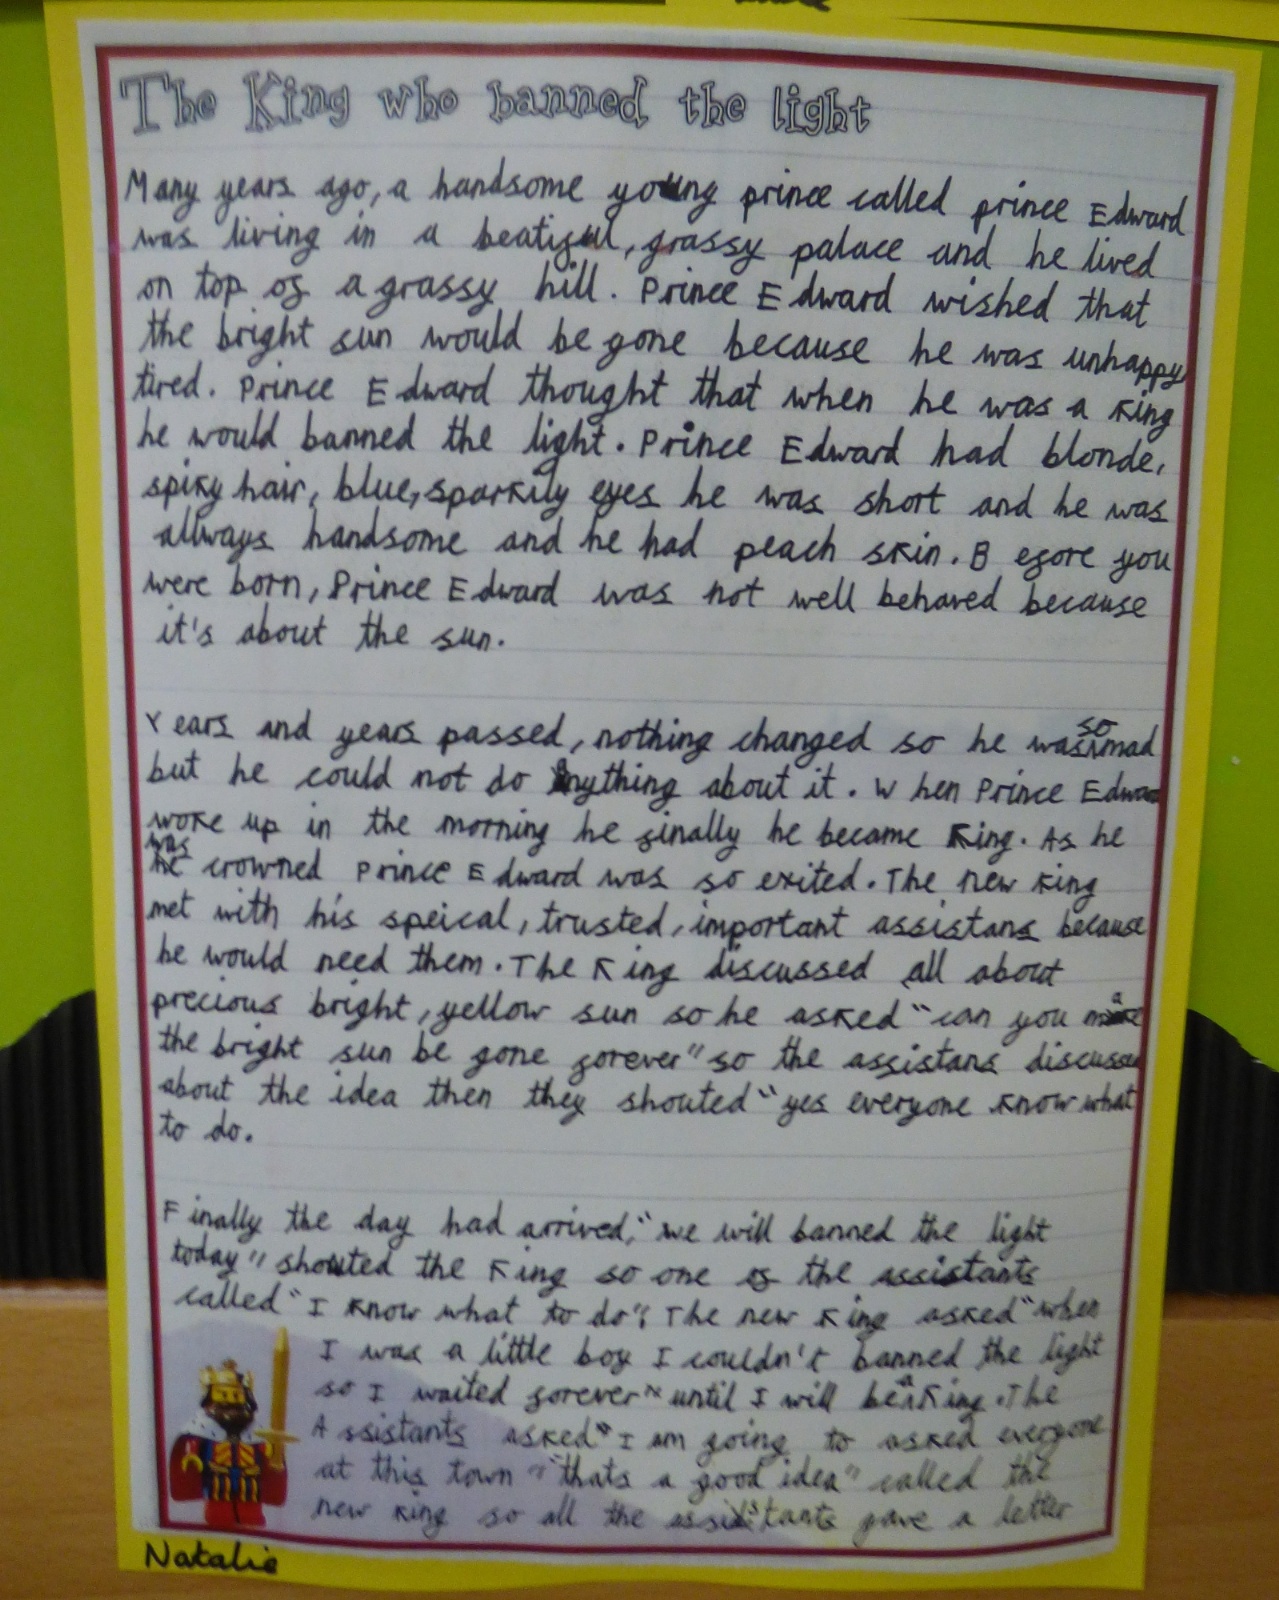 The King who banned the light
Many years ago, a handsome young prince called prince Edward
was living in a beatiful, grassy palace and he lived
on top of a grassy hill. Prince Edward wished that
the bright sun would be gone because he was unhappy
tired. Prince Edward thought that when he was a King
he would banned the light. Prince Edward had blonde,
spiky hair, blue, sparkily eyes he was short and he was
allways handsome and he had peach skin. Before you
were born, Prince Edward was not well behaved because
it's about the sun.
Years and years passed, nothing changed so he was so mad
but he could not do anything about it. When Prince Edward
woke up in the morning he finally he became King. As he
was
he crowned Prince Edward was so exited. The new King
met with his speical, trusted, important assistans because
he would need them. The King discussed all about
precious bright, yellow sun so he asked "can you make
the bright sun be gone forever" so the assistans discussed
about the idea then they shouted "yes everyone know what
to do.
Finally the day had arrived, "we will banned the light
today" shouted the King so one of the assistants
called "I know what to do". The new King asked "when
I was a little boy I couldn't banned the light
so I waited forever" until I will be a King. The
Assistants asked "I am going to asked everyone
at this town" "thats a good idea" called the
new King so all the assistants gave a letter
Natalie